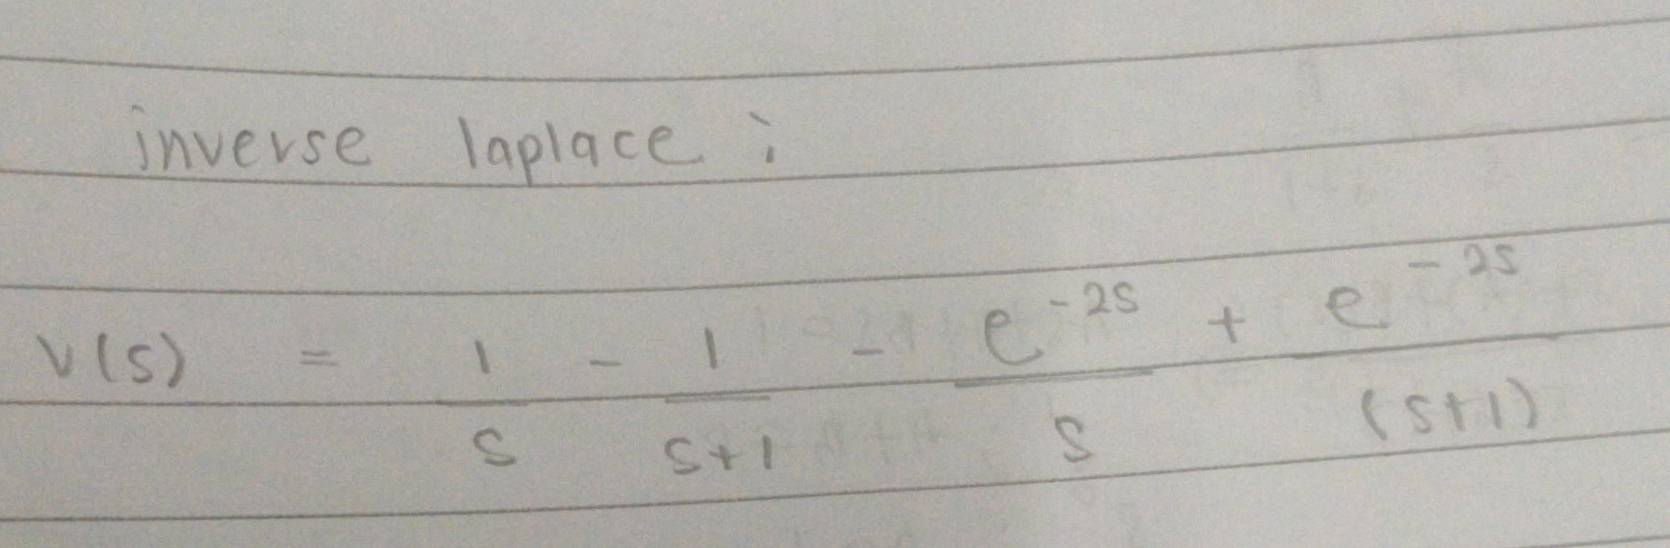 inverse laplace :
V(s) = 1/s - 1/s+1 - e^-2s/s + e^-2s/(s+1)